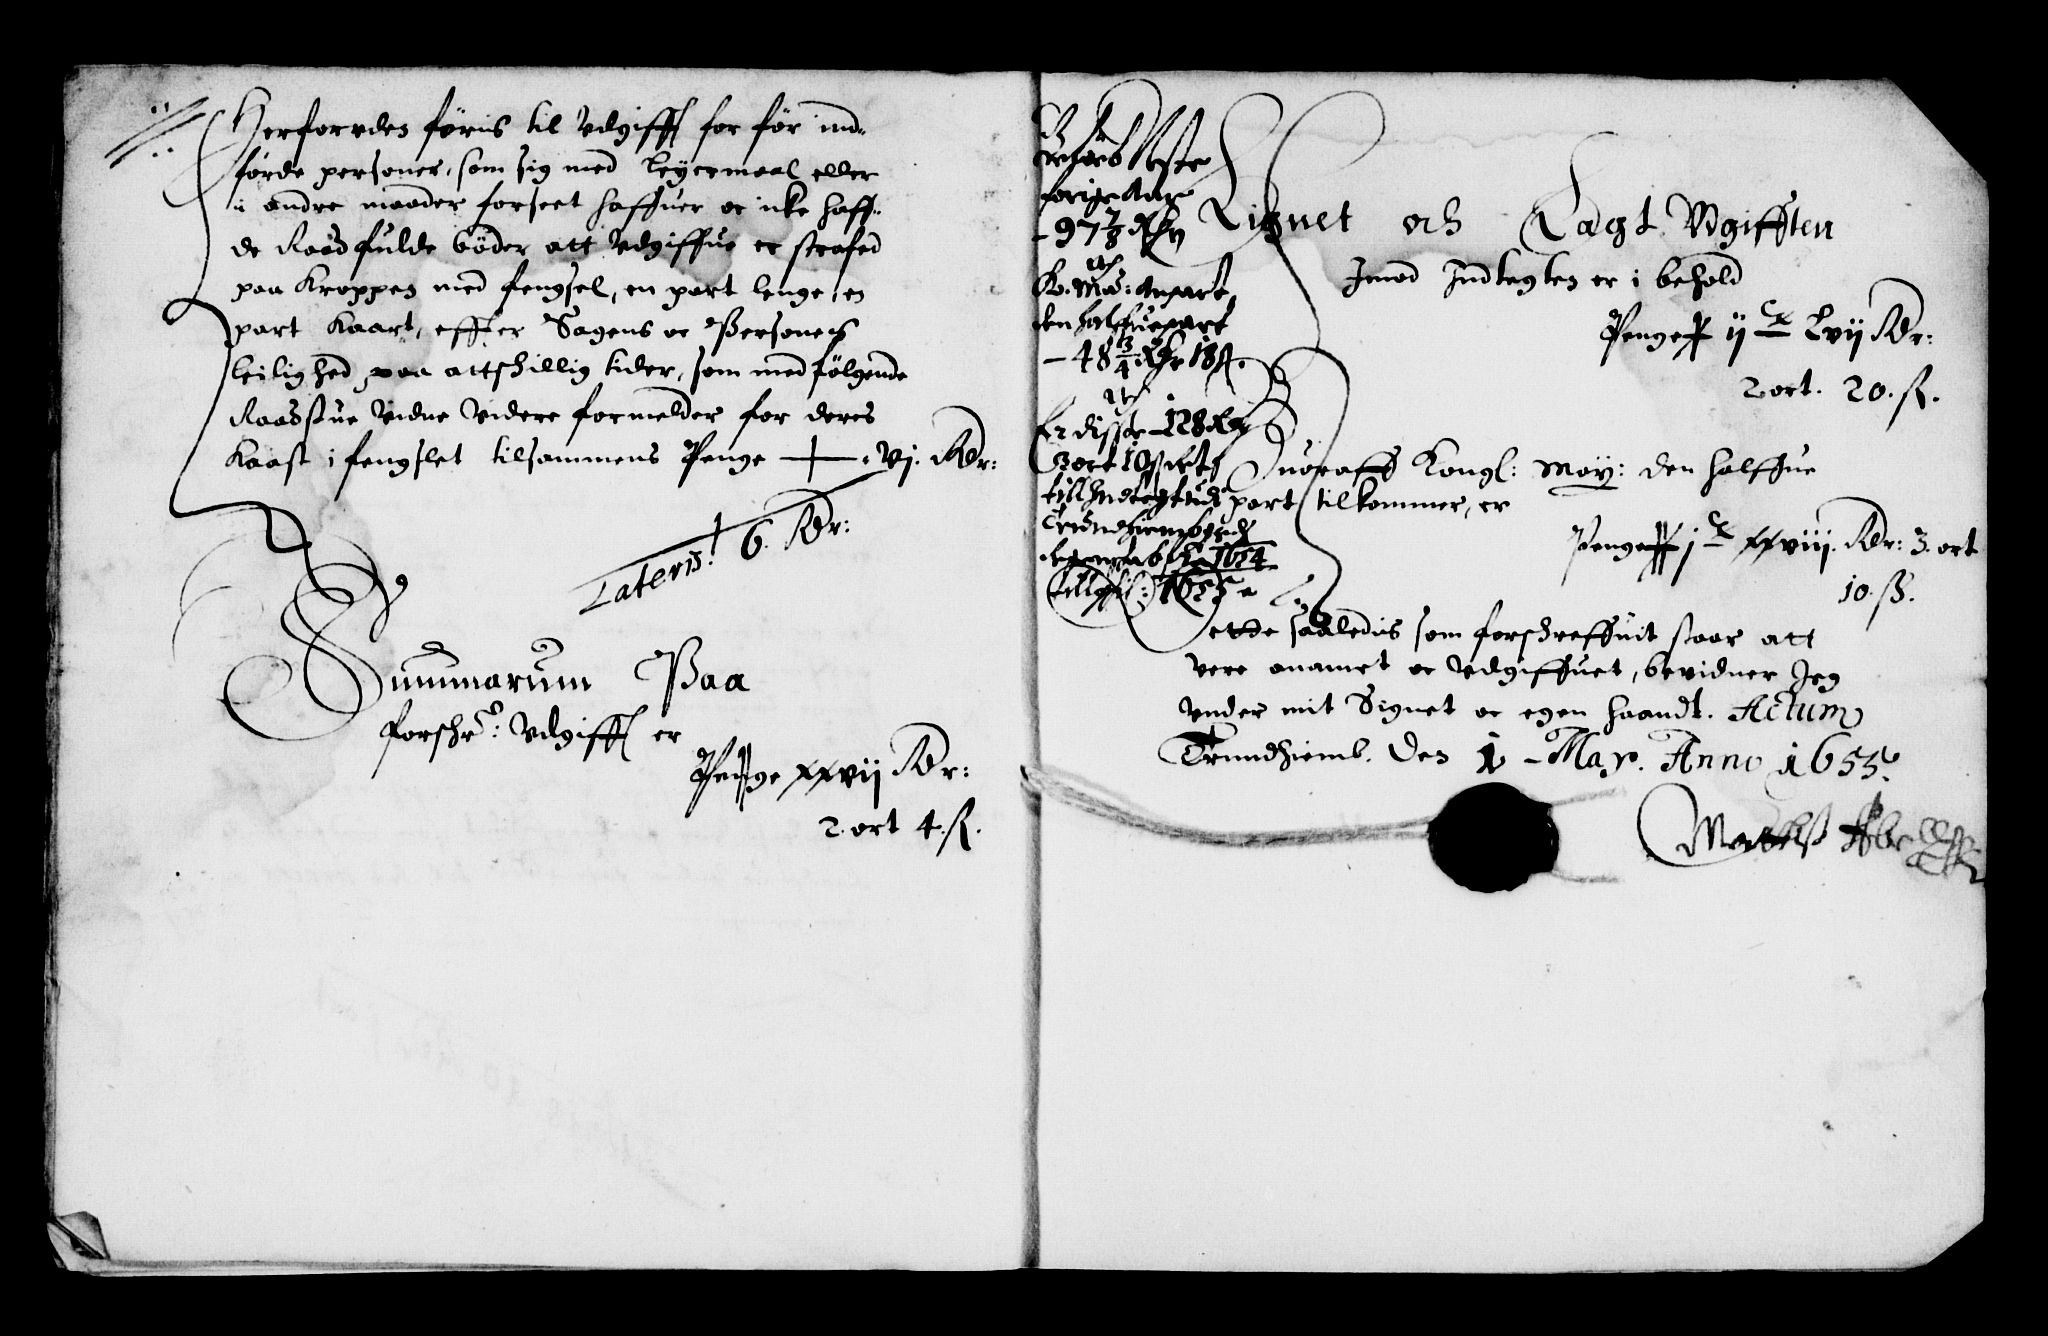 Herforvden føris til Vdgifft for før ind-
førde personer, som sig med Leyermaal eller
i andre maader forseet haffuer oc icke haff-
de Raad fulde bøder att Vdgiffue er straffed
paa Kroppen med fengsel, en part lenge, en
part Kaart, effter Sagens oc Personens
leilighed paa attschillig tider, som med følgende
Raadstue Vidne Videre formelder for deres
Kaast i fengslet tilsammens Penge — vj. Rdr:
Lateris: 6. Rdr:
Summarum Paa
forschr: Vdgifft er
Penge xxvij Rdr:
2. ort 4. ß.
forige Aar
- 97 7/8 Rdr
Ko. May: Anpart
den halffue part
- 48 3/4 Rdr 18 ß.
Er disse - 128 Rdr
3 ort 10 ß
1654
1655
Lignet och Lagt Vdgifften
Imod Indtegten er i behold
Penge ij C Lvij Rdr:
2 ort. 20. ß.
Huoraff Kongl: May: den halffue
part tilkommer, er
Penge j C xxviij. Rdr: 3. ort
10. ß.
Dette saaledis som forschreffuit staar att
vere anamet oc Vdgiffuet, bevidner Jeg
vnder mit Signet oc egen haandt. Actum
Trundhiemb. den 1 - May. Anno 1655.